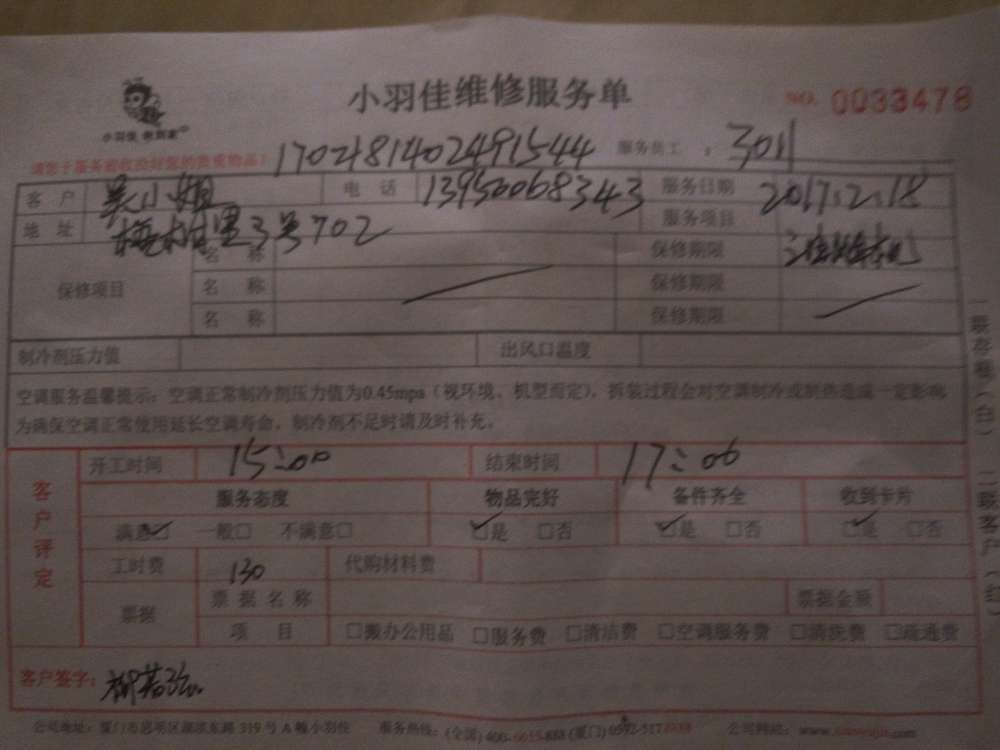 小羽佳维修服务单
NO. 0033478
小羽佳
1702181402491544 服务员工: 3011
客户 吴小姐 电话 13950068343 服务日期 2017.2.18
地址 梅村里3号702 服务项目
保修项目 名称 保修期限
名称 保修期限
名称 保修期限
制冷剂压力值 出风口温度
空调服务温馨提示:空调正常制冷剂压力值为0.45mpa(视环境、机型而定),拆装过程会对空调制冷或制热造成一定影响
为确保空调正常使用延长空调寿命,制冷剂不足时请及时补充。
客户评定
开工时间 15:00 结束时间 17:06
服务态度 物品完好 备件齐全 收到卡片
满意☑ 一般□ 不满意□ ☑是 □否 ☑是 □否 ☑是 □否
工时费 130 代购材料费
票据 票据名称 票据金额
项目 □搬办公用品 □服务费 □清洁费 □空调服务费 □清洗费 □疏通费
客户签字:
公司地址:厦门市思明区湖滨东路319号A幢小羽佳 服务热线:(全国)400-6655-888(厦门)0592-517 公司网站:www.
一联存根(白) 二联客户(红)